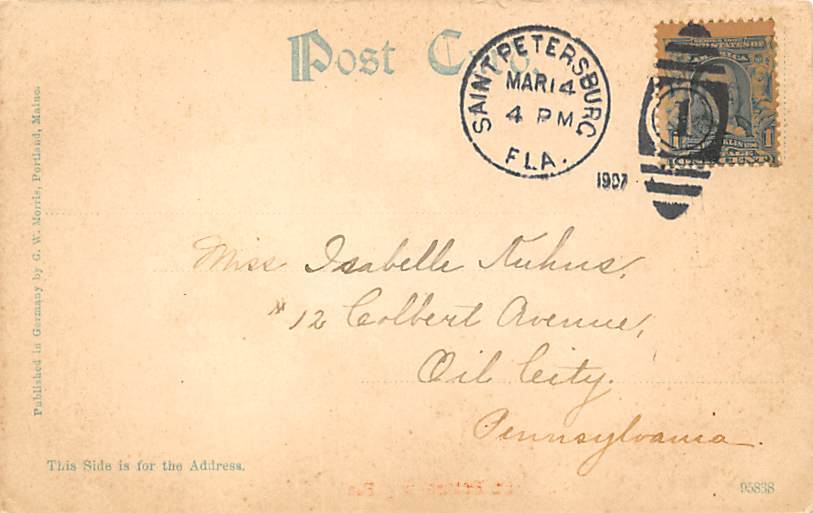 Post
SAINT PETERSBURG
MAR 14
4 PM
FLA.
1907
1
Miss Isabelle Kuhns,
#12 Colbert Avenue,
Oil City.
Pennsylvania.
Published in Germany by G. W. Morris, Portland, Maine.
This Side is for the Address.
95838